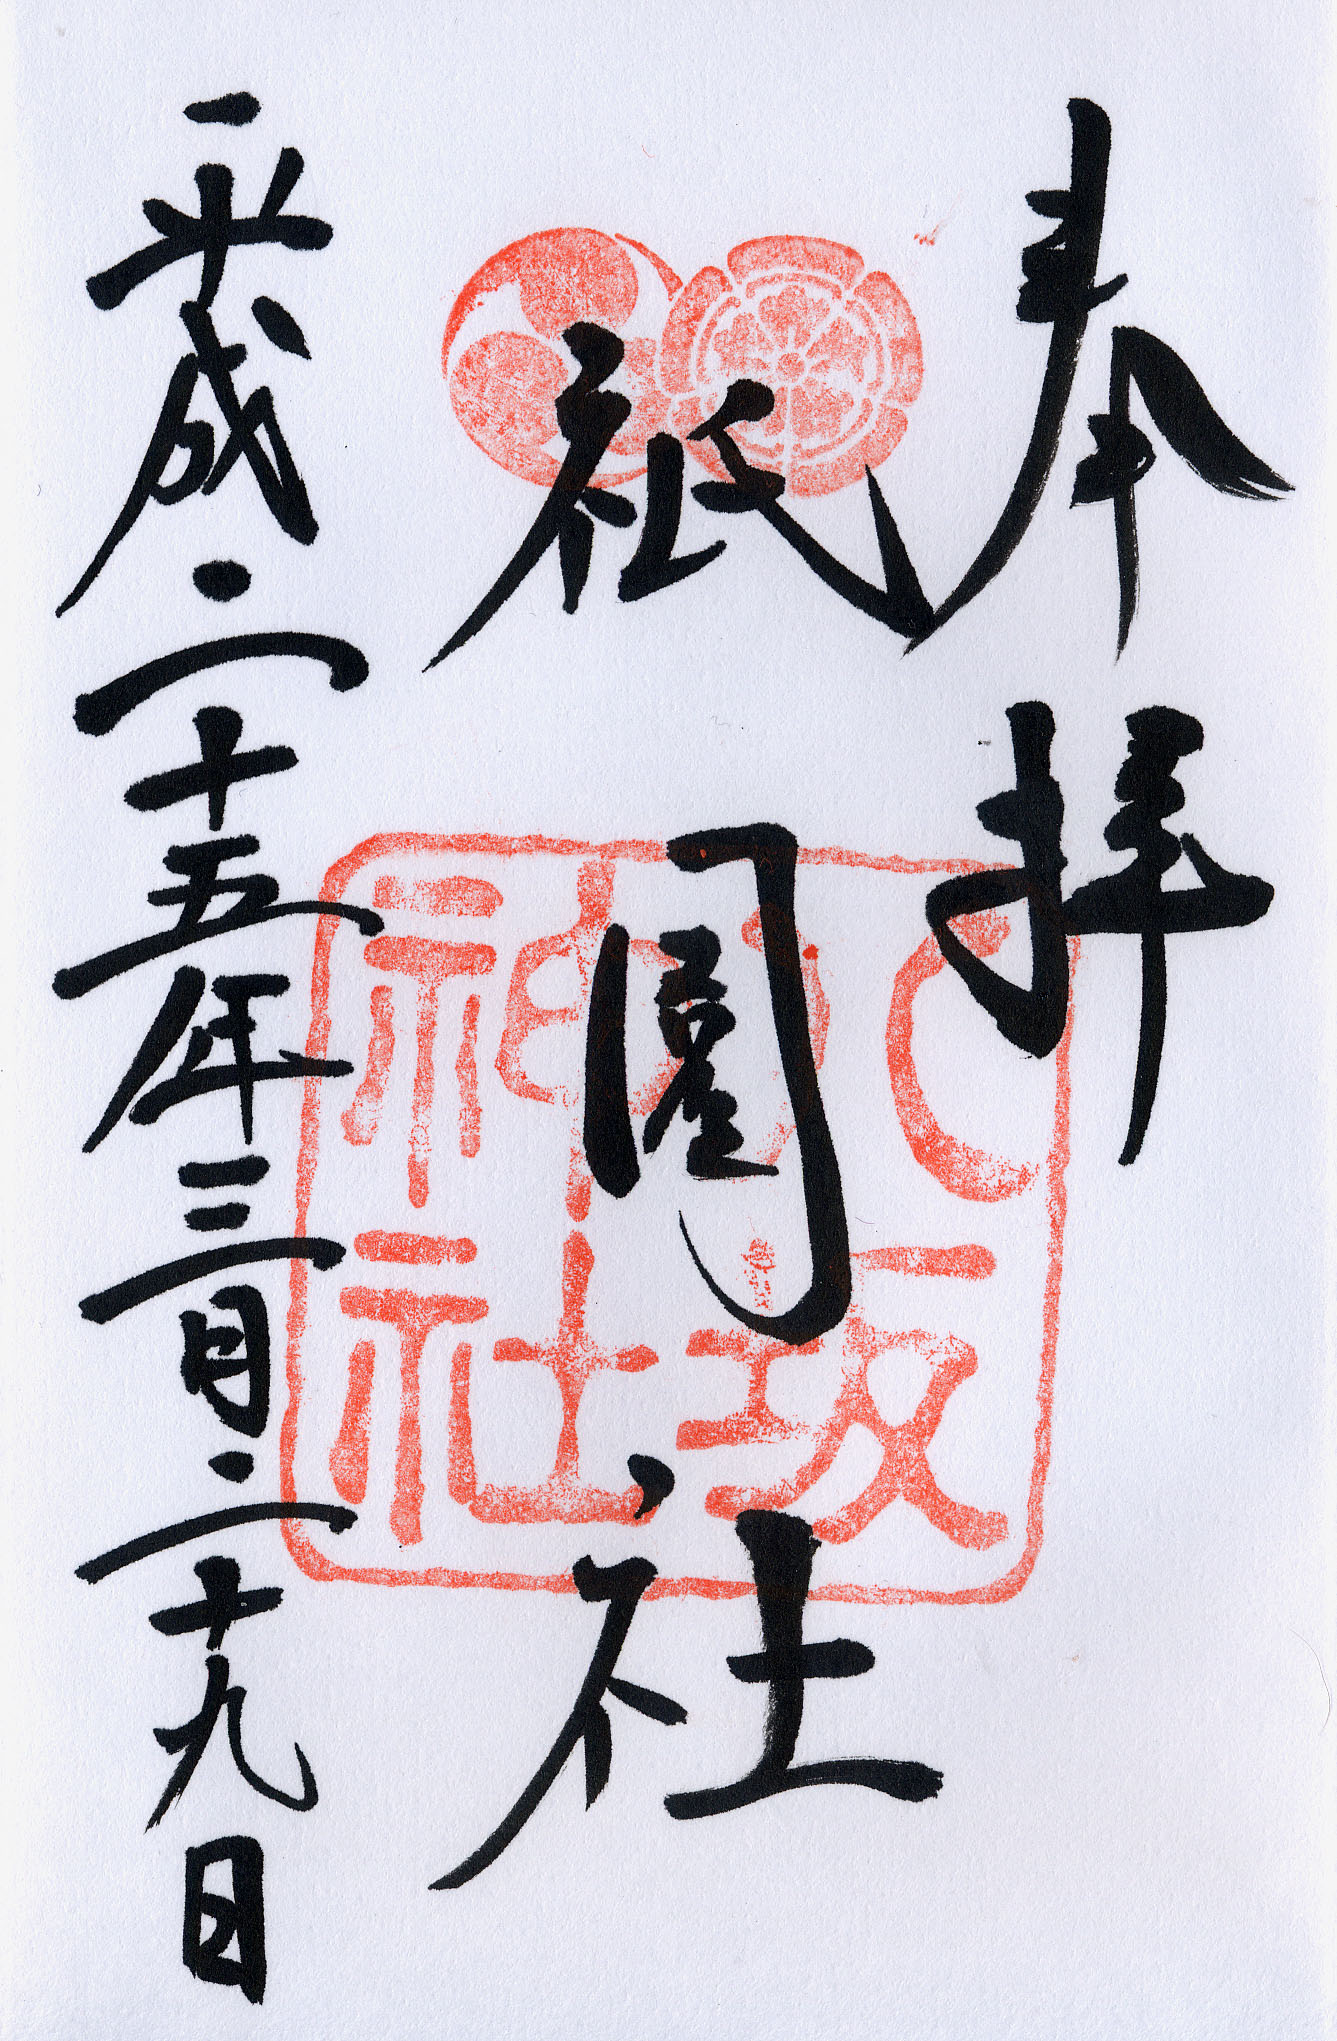 奉拝
祇園社
八坂神社
平成二十五年三月二十九日